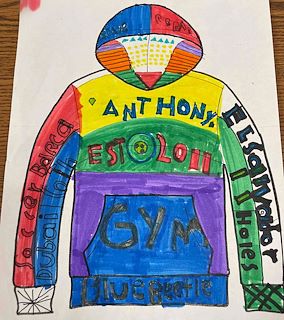 ANTHONY
EST 2011
Soccer Barca
Dubai
El Salvador
11 Holes
GYM
Blue Beetle